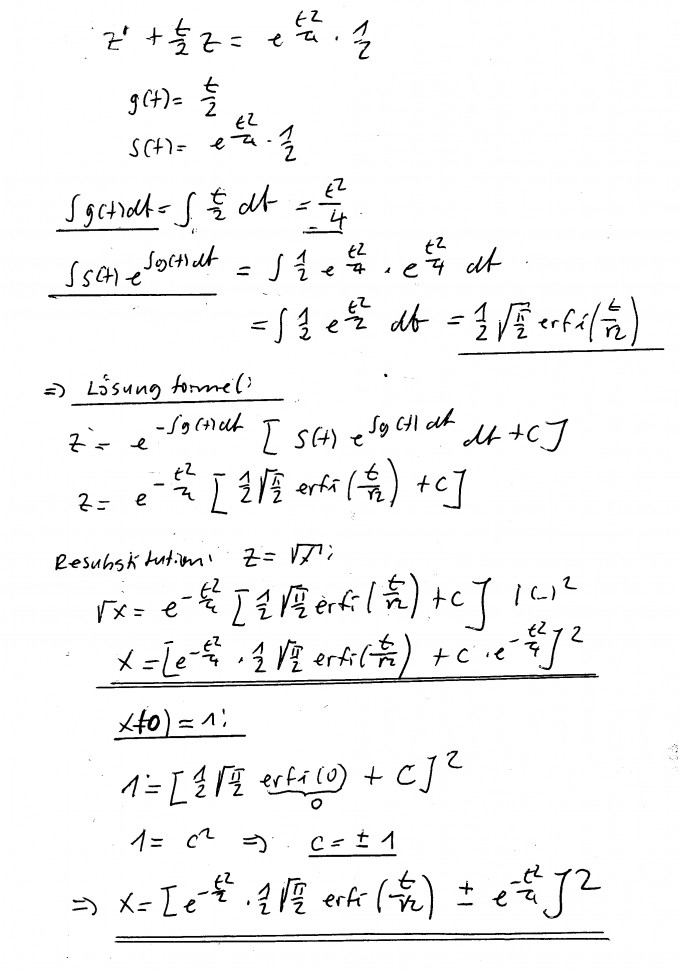 z' + t/2 z = e^(t²/4) · 1/2
g(t) = t/2
s(t) = e^(t²/4) · 1/2
∫g(t)dt = ∫ t/2 dt = t²/4
∫s(t) e^(∫g(t)dt) = ∫ 1/2 e^(t²/4) · e^(t²/4) dt
= ∫ 1/2 e^(t²/2) dt = 1/2 √(π/2) erfi(t/√2)
=> Lösungformel:
z = e^(-∫g(t)dt) [ s(t) e^(∫g(t)dt) dt + c ]
z = e^(-t²/4) [ 1/2 √(π/2) erfi(t/√2) + c ]
Resubstitution: z = √x;
√x = e^(-t²/4) [ 1/2 √(π/2) erfi(t/√2) + c ] |(-)²
x = [ e^(-t²/4) · 1/2 √(π/2) erfi(t/√2) + c · e^(-t²/4) ]²
x(0) = 1;
1 = [ 1/2 √(π/2) erfi(0) + C ]²
0
1 = c² => c = ± 1
=> x = [ e^(-t²/2) · 1/2 √(π/2) erfi(t/√2) ± e^(-t²/4) ]²